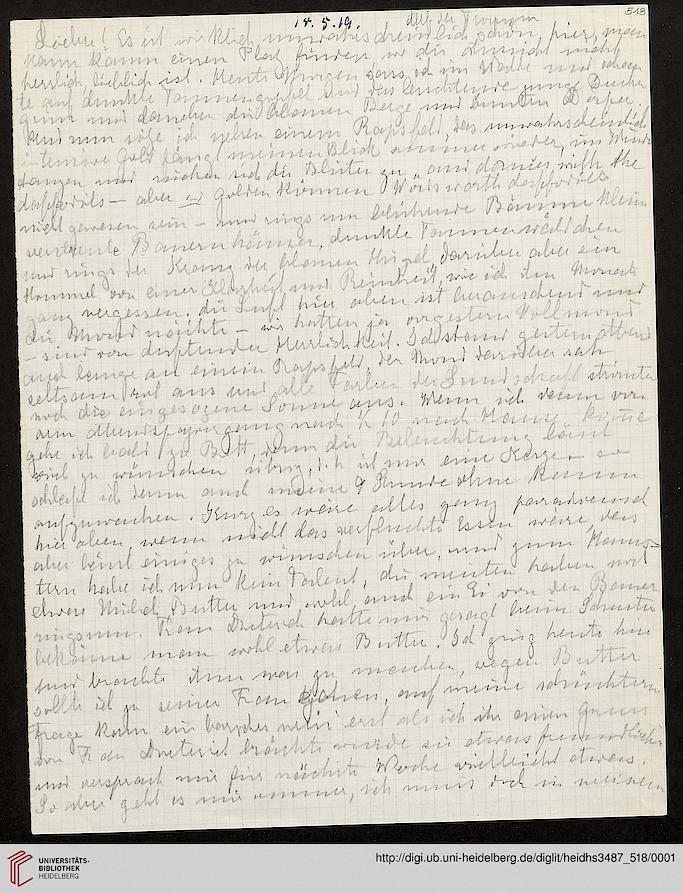 518
14. 5. 19.
Liebe! Es ist wirklich unwahrscheinlich schön hier, man
kann kaum einen Platz finden wo die Aussicht nicht
herrlich, lieblich ist. Heute Morgen sass ich im Walde und schau-
te auf dunkle Tannengipfel und das leuchtende junge Buchen
grün und daneben die blauen Berge und bunten Dörfer.
Und nun sitze ich neben einem Rapsfeld, das unwahrscheinlich
intensive Gold fängt meinen Blick immer wieder, im Winde
tanzen und nicken sich die Blüten zu „and dances with the
daffodils – aber so golden können Wordsworth daffodils
nicht gewesen sein – und rings um blühende Bäume kleine
verstreute Bauernhäuser, dunkle Tannenwäldchen
und rings der Kranz der blauen Hügel, darüber aber ein
Himmel von einer Klarheit und Reinheit, wie ich ihn Monate
ganz vergessen. die Luft hier oben ist berauschend und
die Mondnächte – wir hatten ja vorgestern Vollmond
– sind von duftender Herrlichkeit. Ich stand gestern Abend
auch lange an einem Rapsfeld, der Mond darüber sah
seltsam rot aus und alle Farben der Landschaft strömten
noch die eingesogene Sonne aus. Wenn ich dann von
dem Abendspaziergang nach ½ 10 nach Hause komme
gehe ich bald zu Bett, denn die Beleuchtung lässt
viel zu wünschen übrig, d. h. ist nur eine Kerze – so
schlafe ich denn auch meine 9 Stunde ohne kaum
aufzuwachen. Kurz es wäre alles ganz paradiesisch
hier oben wenn nicht das verfluchte Essen wäre, das
aber lässt einiges zu wünschen über, und zum Hams-
tern habe ich nun kein Talent, die meisten haben noch
etwas Milch, Butter und wohl auch ein Ei von den Bauern
ringsum. Frau Dieterich hatte mir gesagt beim Schuster
bekäme man wohl etwas Butter. Ich ging heute hin
und brachte ihm was zu machen, wegen Butter
sollte ich zu seiner Frau gehen, auf meine schüchterne
Frage kam ein barsches nein, erst als ich ihr einen Gruss
von Frau Dieterich brachte wurde sie etwas freundlicher
und versprach mir für nächste Woche vielleicht etwas.
So aber geht es mir immer, ich muss doch in meinem
UNIVERSITÄTS-
BIBLIOTHEK
HEIDELBERG
http://digi.ub.uni-heidelberg.de/diglit/heidhs3487_518/0001